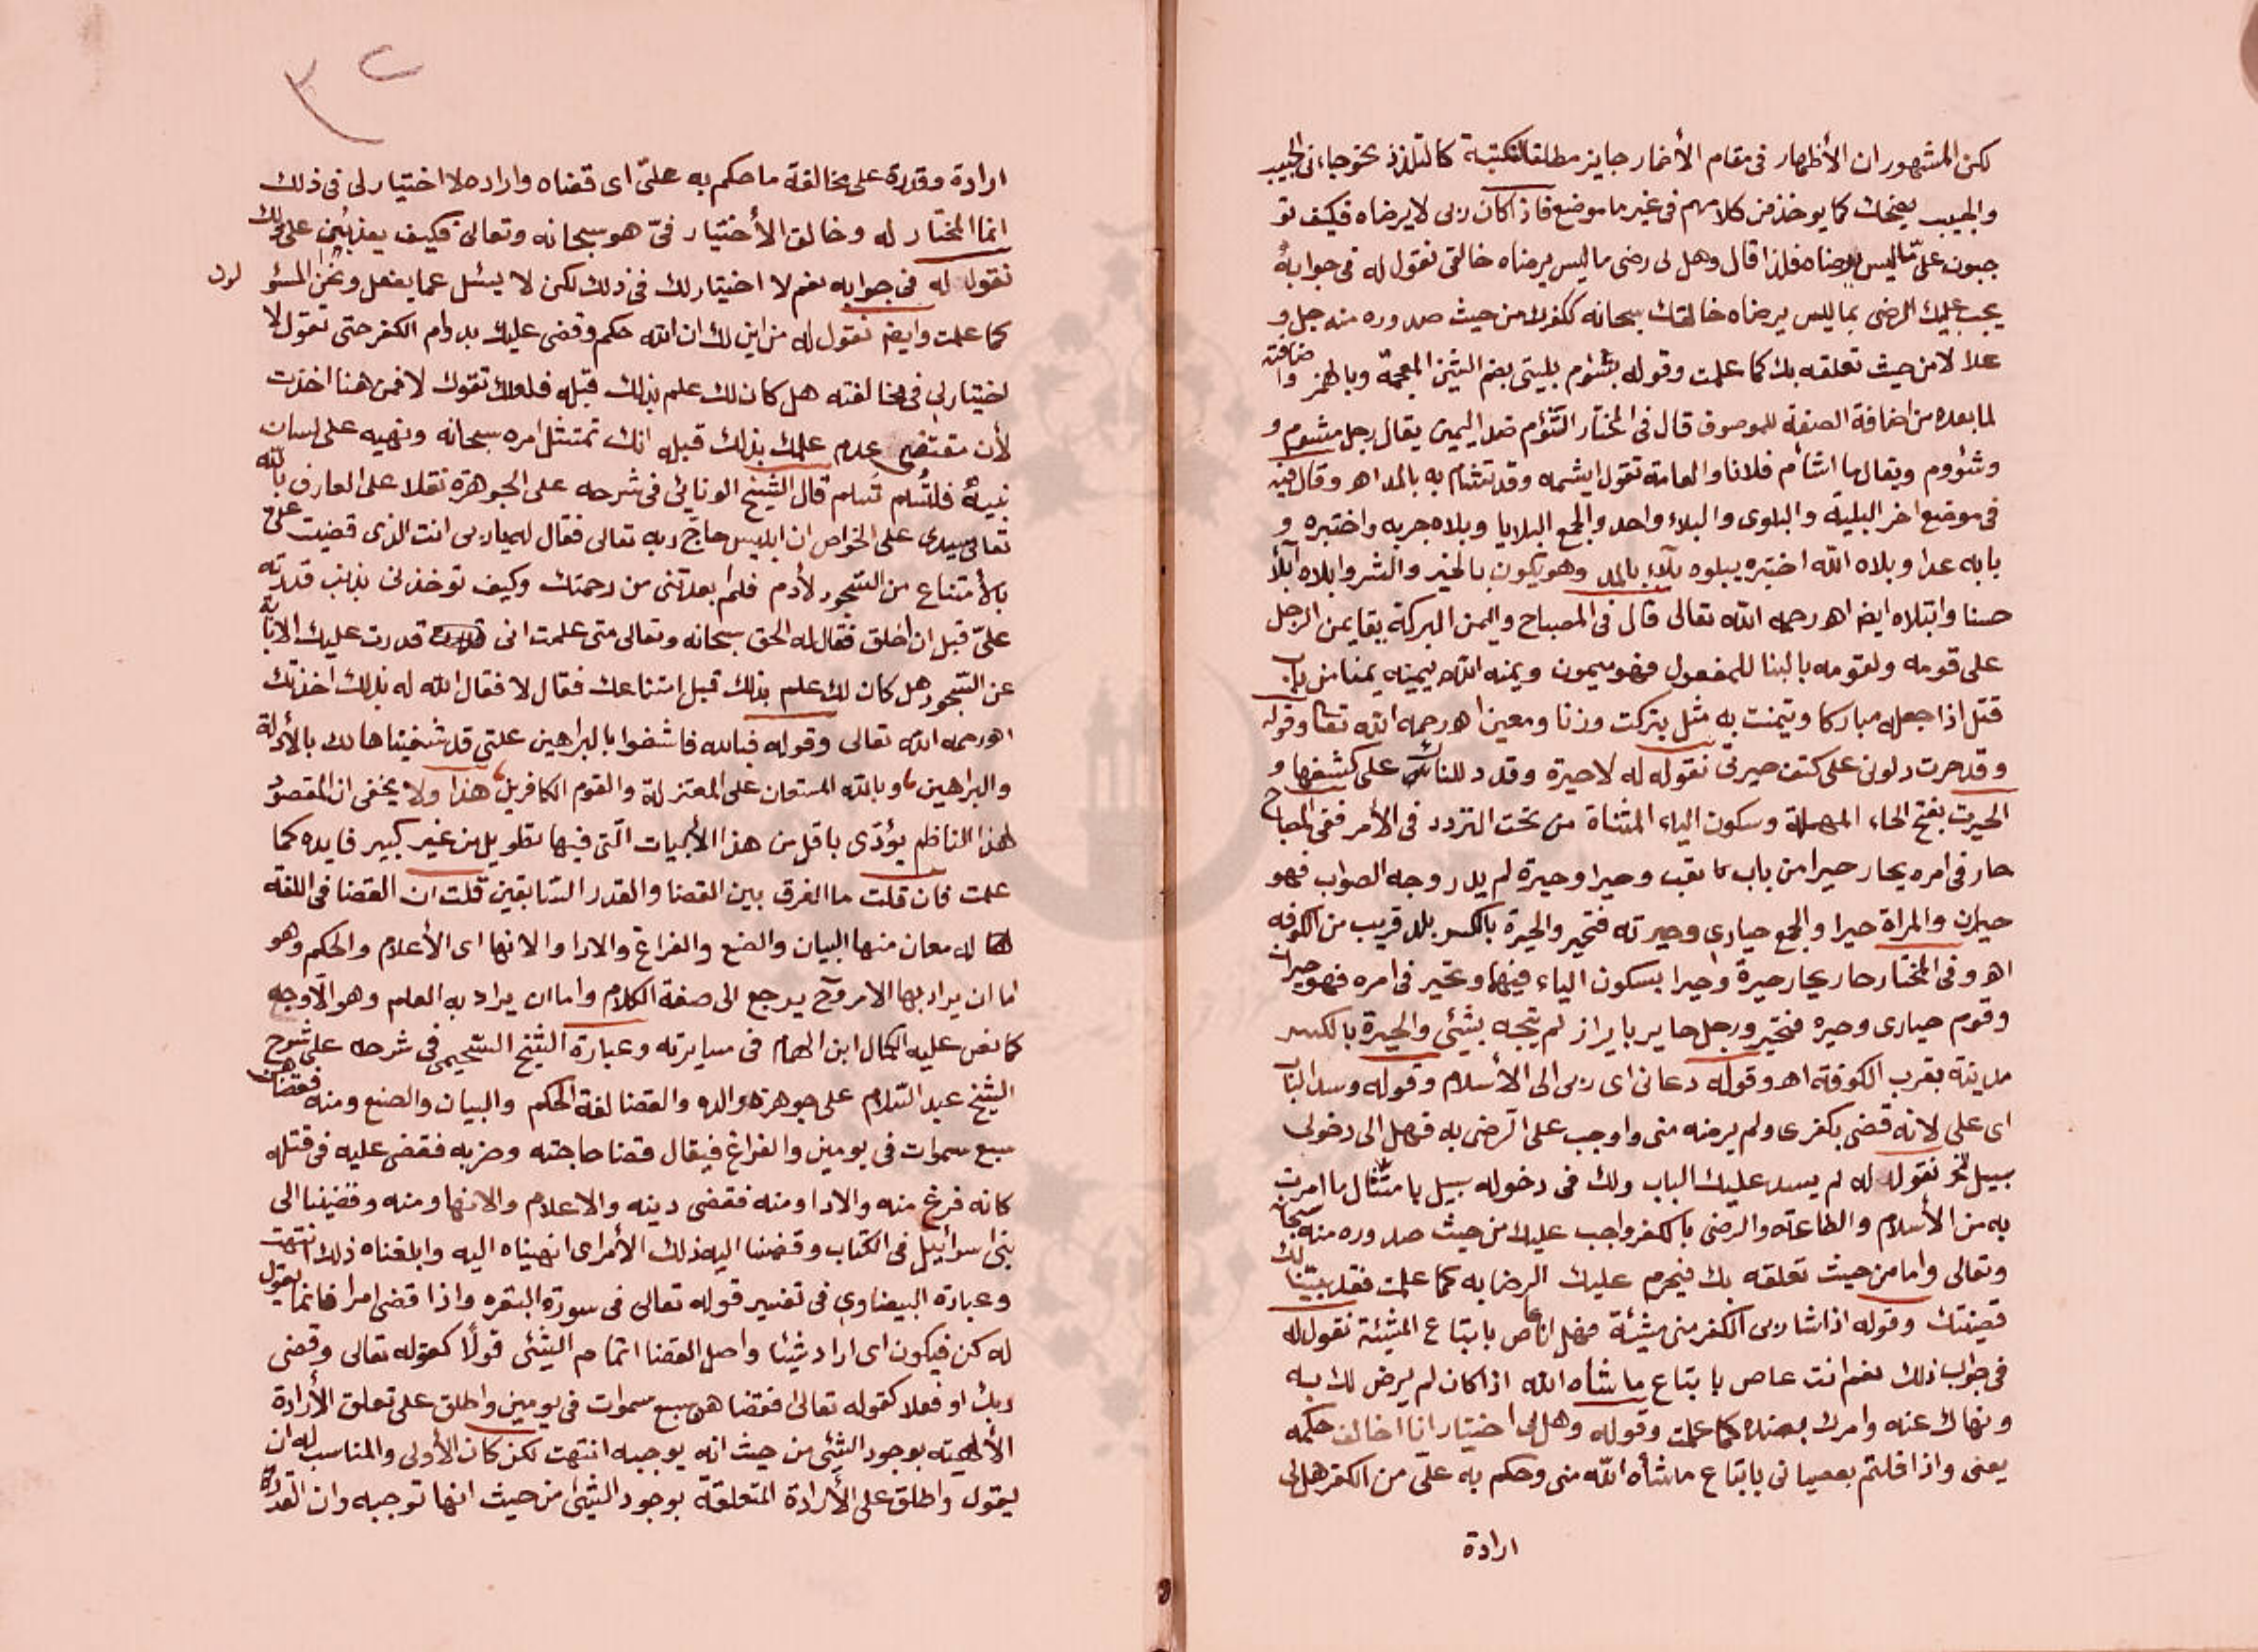 لكن المشهور ان الأظهار فى مقام الأضمار جايز مطلقا لنكتة كالتلذذ نحو جاءنى الحبيب
والحبيب يضحك كما يوخذ من كلامهم فى غير ما موضع فاذا كان ربى لا يرضاه فكيف تو
جبون علىّ ما ليس يرضاه فلذا قال وهل لى رضى ما ليس يرضاه خالقى نقول له فى جوابه
يجب عليك الرضى بما ليس يرضاه خالقك سبحانه ككفرك من حيث صدوره منه جل و
علا لا من حيث تعلقه بك كما علمت وقوله بشؤم بليتى بضم الشين المعجمة وبالهمز واضافته
لما بعده من اضافة الصفة للموصوف قال فى المختار الشؤم ضد اليمين يقال رجل مشوم و
ومشؤوم ويقال ما اشأم فلانا والعامة تقول ايشمه وقد تشام به بالمد اهـ وقال فيه
فى موضع اخر البلية والبلوى والبلاء واحد والجمع البلايا وبلاه جربه واختبره و
بابه عدا وبلاه الله اختبره يبلوه بلآء بالمد وهو يكون بالخير والشر وابلاه ابلآ
حسنا وابتلاه ايضا اهـ رحمه الله تعالى قال فى المصباح واليمن البركة يقال يمن الرجل
على قومه ولقومه بالبنا للمفعول فهو ميمون ويمنه الله ييمنه يمنا من باب
قتل اذا جعله مباركا وتيمنت به مثل تبركت وزنا ومعنى اهـ رحمه الله تعا وقوله
وقد حرت دلونى على كشف حيرتى نقول له لا حيرة وقدد للناك على كشفها و
الحيرت بفتح الحاء المهملة وسكون الياء المثناة من تحت التردد فى الأمر ففى المصباح
حار فى امره يحار حيرا من باب تعب وحيرا وحيرة لم يدر وجه الصواب فهو
حيران والمراة حيرا والجمع حيارى وحيرته فتحير والحيرة بالكسر بلد قريب من الكوفه
اهـ وفى المختار حار يحار حيرة وحيرا بسكون الياء فيهما وتحير فى امره فهو حيران
وقوم حيارى وحيره فتحير ورجل حاير باير اذ لم يتجه بشئى والحيرة بالكسر
مدينة بقرب الكوفة اهـ وقوله دعانى اى ربى الى الأسلام وقوله وسد الباب
اى على لانه قضى بكفرى ولم يرضه منى واوجب على الرضى به فهل الى دخولى
سبيل الخ نقول له لم يسد عليك الباب ولك فى دخوله سبيل بامتثال ما امرت
به من الأسلام والطاعة والرضى بالكفر واجب عليك من حيث صدوره منه سبحانه
وتعالى واما من حيث تعلقه بك فيحرم عليك الرضا به كما علمت فقد بيّنا لك
قضيتك وقوله اذا شا ربى الكفر منى مشئة فهل انا عاص باتباع المشئة نقول له
فى جواب ذلك نعم انت عاص باتباع ما شاه الله اذا كان لم يرض لك به
ونهاك عنه وامرك بضده كما علمت وقوله وهل لى اختيار انا اخالف حكمه
يعنى واذا قلتم بعصيانى باتباع ما شأه الله منى وحكم به علىّ من الكفر هل لى
ارادة
٣٢
ارادة وقدرة على مخالفة ما حكم به علىّ اى قضاه واراده لا اختيار لى فى ذلك
انما المختار له وخالق الأختيار فىّ هو سبحانه وتعالى فكيف يعذبنى على ذلك
نقول له فى جوابه نعم لا اختيار لك فى ذلك لكن لا يسئل عما يفعل ونحن المسئو لون
كما علمت وايضا نقول له من اين لك ان الله حكم وقضى عليك بدوام الكفر حتى تقول لا
اختيار لى فى مخالفته هل كان لك علم بذلك قبله فلعلك تقول لا فمن هنا اخذت
لأن مقتضى عدم علمك بذلك قبله انك تمتثل امره سبحانه ونهيه على لسان
نبيه فلتُسلم تسلم قال الشيخ الونائى فى شرحه على الجوهرة نقلا على العارف بالله
تعالى سيدى على الخواص ان ابليس حاج ربه تعالى فقال له يا ربى انت الذى قضيت علىّ
بالأمتناع من السجود لأدم فلم ابعدتنى من رحمتك وكيف توخذنى بذنب قدرته
علىّ قبل ان اخلق فقال له الحق سبحانه وتعالى متى علمت انى قدرت عليك الاباية
عن السجود هل كان لك علم بذلك قبل امتناعك فقال لا فقال الله له بذلك اخذتك
اهـ رحمه الله تعالى وقوله فبالله فاشفوا بالبراهين علتى قد شفيناها لك بالأدلة
والبراهين وبالله المستعان على المعتزلة والقوم الكافرين هذا ولا يخفى ان المقصود
لهذا الناظم يؤدّى باقل من هذا الأبيات الّتى فيها تطويل من غير كبير فايده كما
علمت فان قلت ما الفرق بين القضا والقدر السّابقين قلت ان القضا فى اللغة
له معان منها البيان والصنع والفراغ والادا والانها اى الأعلام والحكم وهو
اما ان يراد بها الامر وح يرجع الى صفة الكلام واما ان يراد به العلم وهو الأوجه
كما نص عليه الكمال ابن الهمام فى مسايرته وعبارة الشيخ السحيمى فى شرحه على شرح
الشيخ عبد السّلام على جوهرة والده والقضا لغة الحكم والبيان والصنع ومنه فقضاهن
سبع سموات فى يومين والفراغ فيقال قضا حاجته وضربه فقضى عليه فى قتله
كانه فرغ منه والادا ومنه فقضى دينه والاعلام والانها ومنه وقضينا الى
بنى اسرائيل فى الكتاب وقضينا اليه ذلك الأمر اى انهيناه اليه وابلغناه ذلك انتهت
وعبارة البيضاوى فى تفسير قوله تعالى فى سورة البقره واذا قضى امرا فانما يقول
له كن فيكون اى اراد شيئا واصل القضا اتمام الشئى قولًا كقوله تعالى وقضى
ربك او فعلا كقوله تعالى فقضاهن سبع سموات فى يومين واطلق على تعلق الأرادة
الألهية بوجود الشئى من حيث انه يوجبه انتهت لكن كان الأولى والمناسب له ان
يقول واطلق على الأرادة المتعلقة بوجود الشئى من حيث انها توجبه وان القدرة